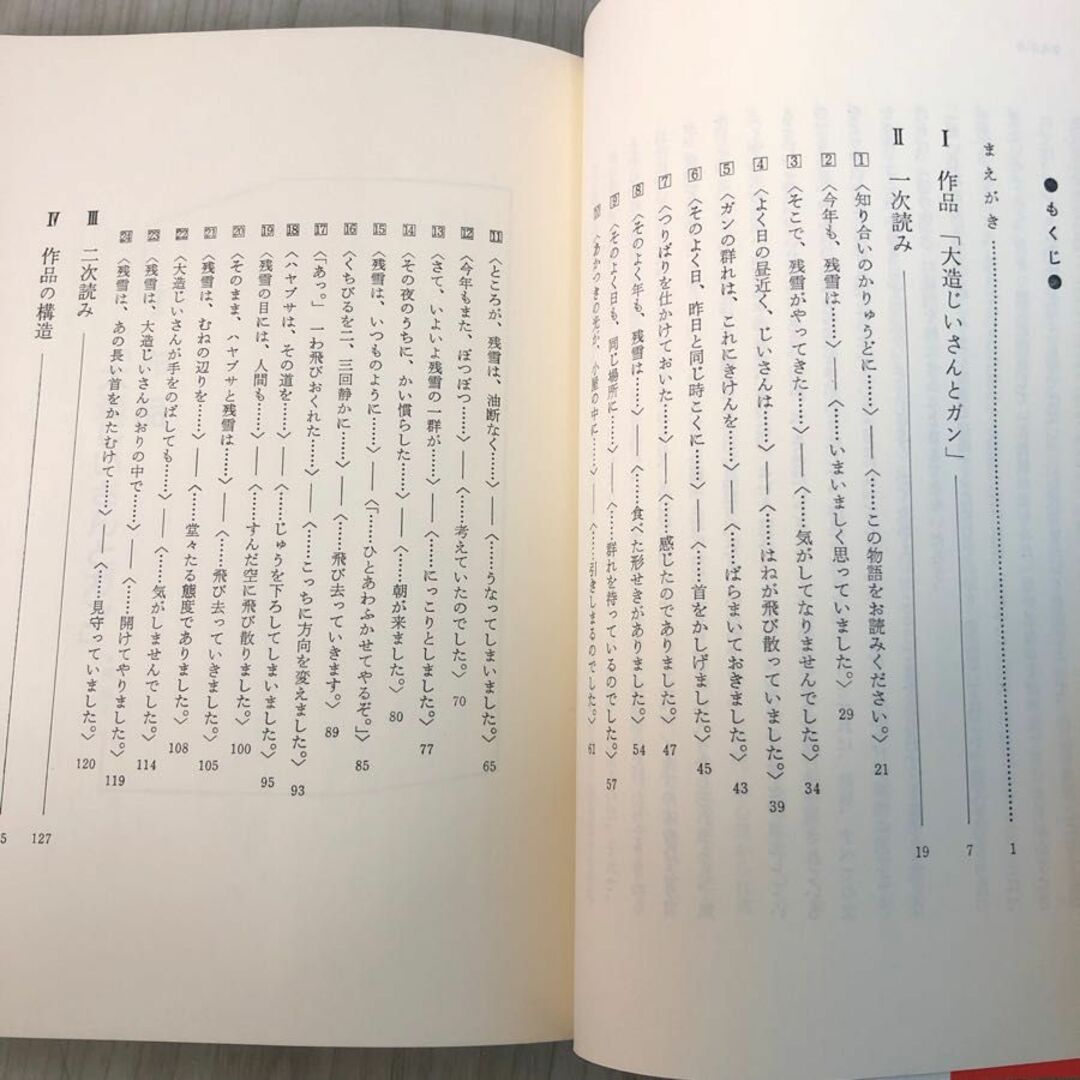 ●もくじ●
まえがき……………………1
Ⅰ 作品「大造じいさんとガン」――7
Ⅱ 一次読み――19
1 〈知り合いのかりゅうどに……〉――〈……この物語をお読みください。〉21
2 〈今年も、残雪は……〉――〈……いまいましく思っていました。〉29
3 〈そこで、残雪がやってきた……〉――〈……気がしてなりませんでした。〉34
4 〈よく日の昼近く、じいさんは……〉――〈……はねが飛び散っていました。〉39
5 〈ガンの群れは、これにきけんを……〉――〈……ばらまいておきました。〉43
6 〈そのよく日、昨日と同じ時こくに……〉――〈……首をかしげました。〉45
7 〈つりばりを仕かけておいた……〉――〈……感じたのでありました。〉47
8 〈そのよく年も、残雪は……〉――〈……食べた形せきがありました。〉54
9 〈そのよく日も、同じ場所に……〉――〈……群れを待っているのでした。〉57
10 〈あかつきの光が、小屋の中に……〉――〈……引きしまるのでした。〉61
11 〈ところが、残雪は、油断なく……〉――〈……うなってしまいました。〉65
12 〈今年もまた、ぼつぼつ……〉――〈……考えていたのでした。〉70
13 〈さて、いよいよ残雪の一群が……〉――〈……にっこりとしました。〉77
14 〈その夜のうちに、かい慣らした……〉――〈……朝が来ました。〉80
15 〈残雪は、いつものように……〉――〈「……ひとあわふかせてやるぞ。」〉85
16 〈くちびるを二、三回静かに……〉――〈……飛び去っていきます。〉89
17 〈「あっ。」一わ飛びおくれた……〉――〈……こっちに方向を変えました。〉93
18 〈ハヤブサは、その道を……〉――〈……じゅうを下ろしてしまいました。〉95
19 〈残雪の目には、人間も……〉――〈……すんだ空に飛び散りました。〉100
20 〈そのまま、ハヤブサと残雪は……〉――〈……飛び去っていきました。〉105
21 〈残雪は、むねの辺りを……〉――〈……堂々たる態度でありました。〉108
22 〈大造じいさんが手をのばしても……〉――〈……気がしませんでした。〉114
23 〈残雪は、大造じいさんのおりの中で……〉――〈……開けてやりました。〉119
24 〈残雪は、あの長い首をかたむけて……〉――〈……見守っていました。〉120
Ⅲ 二次読み――127
Ⅳ 作品の構造――5